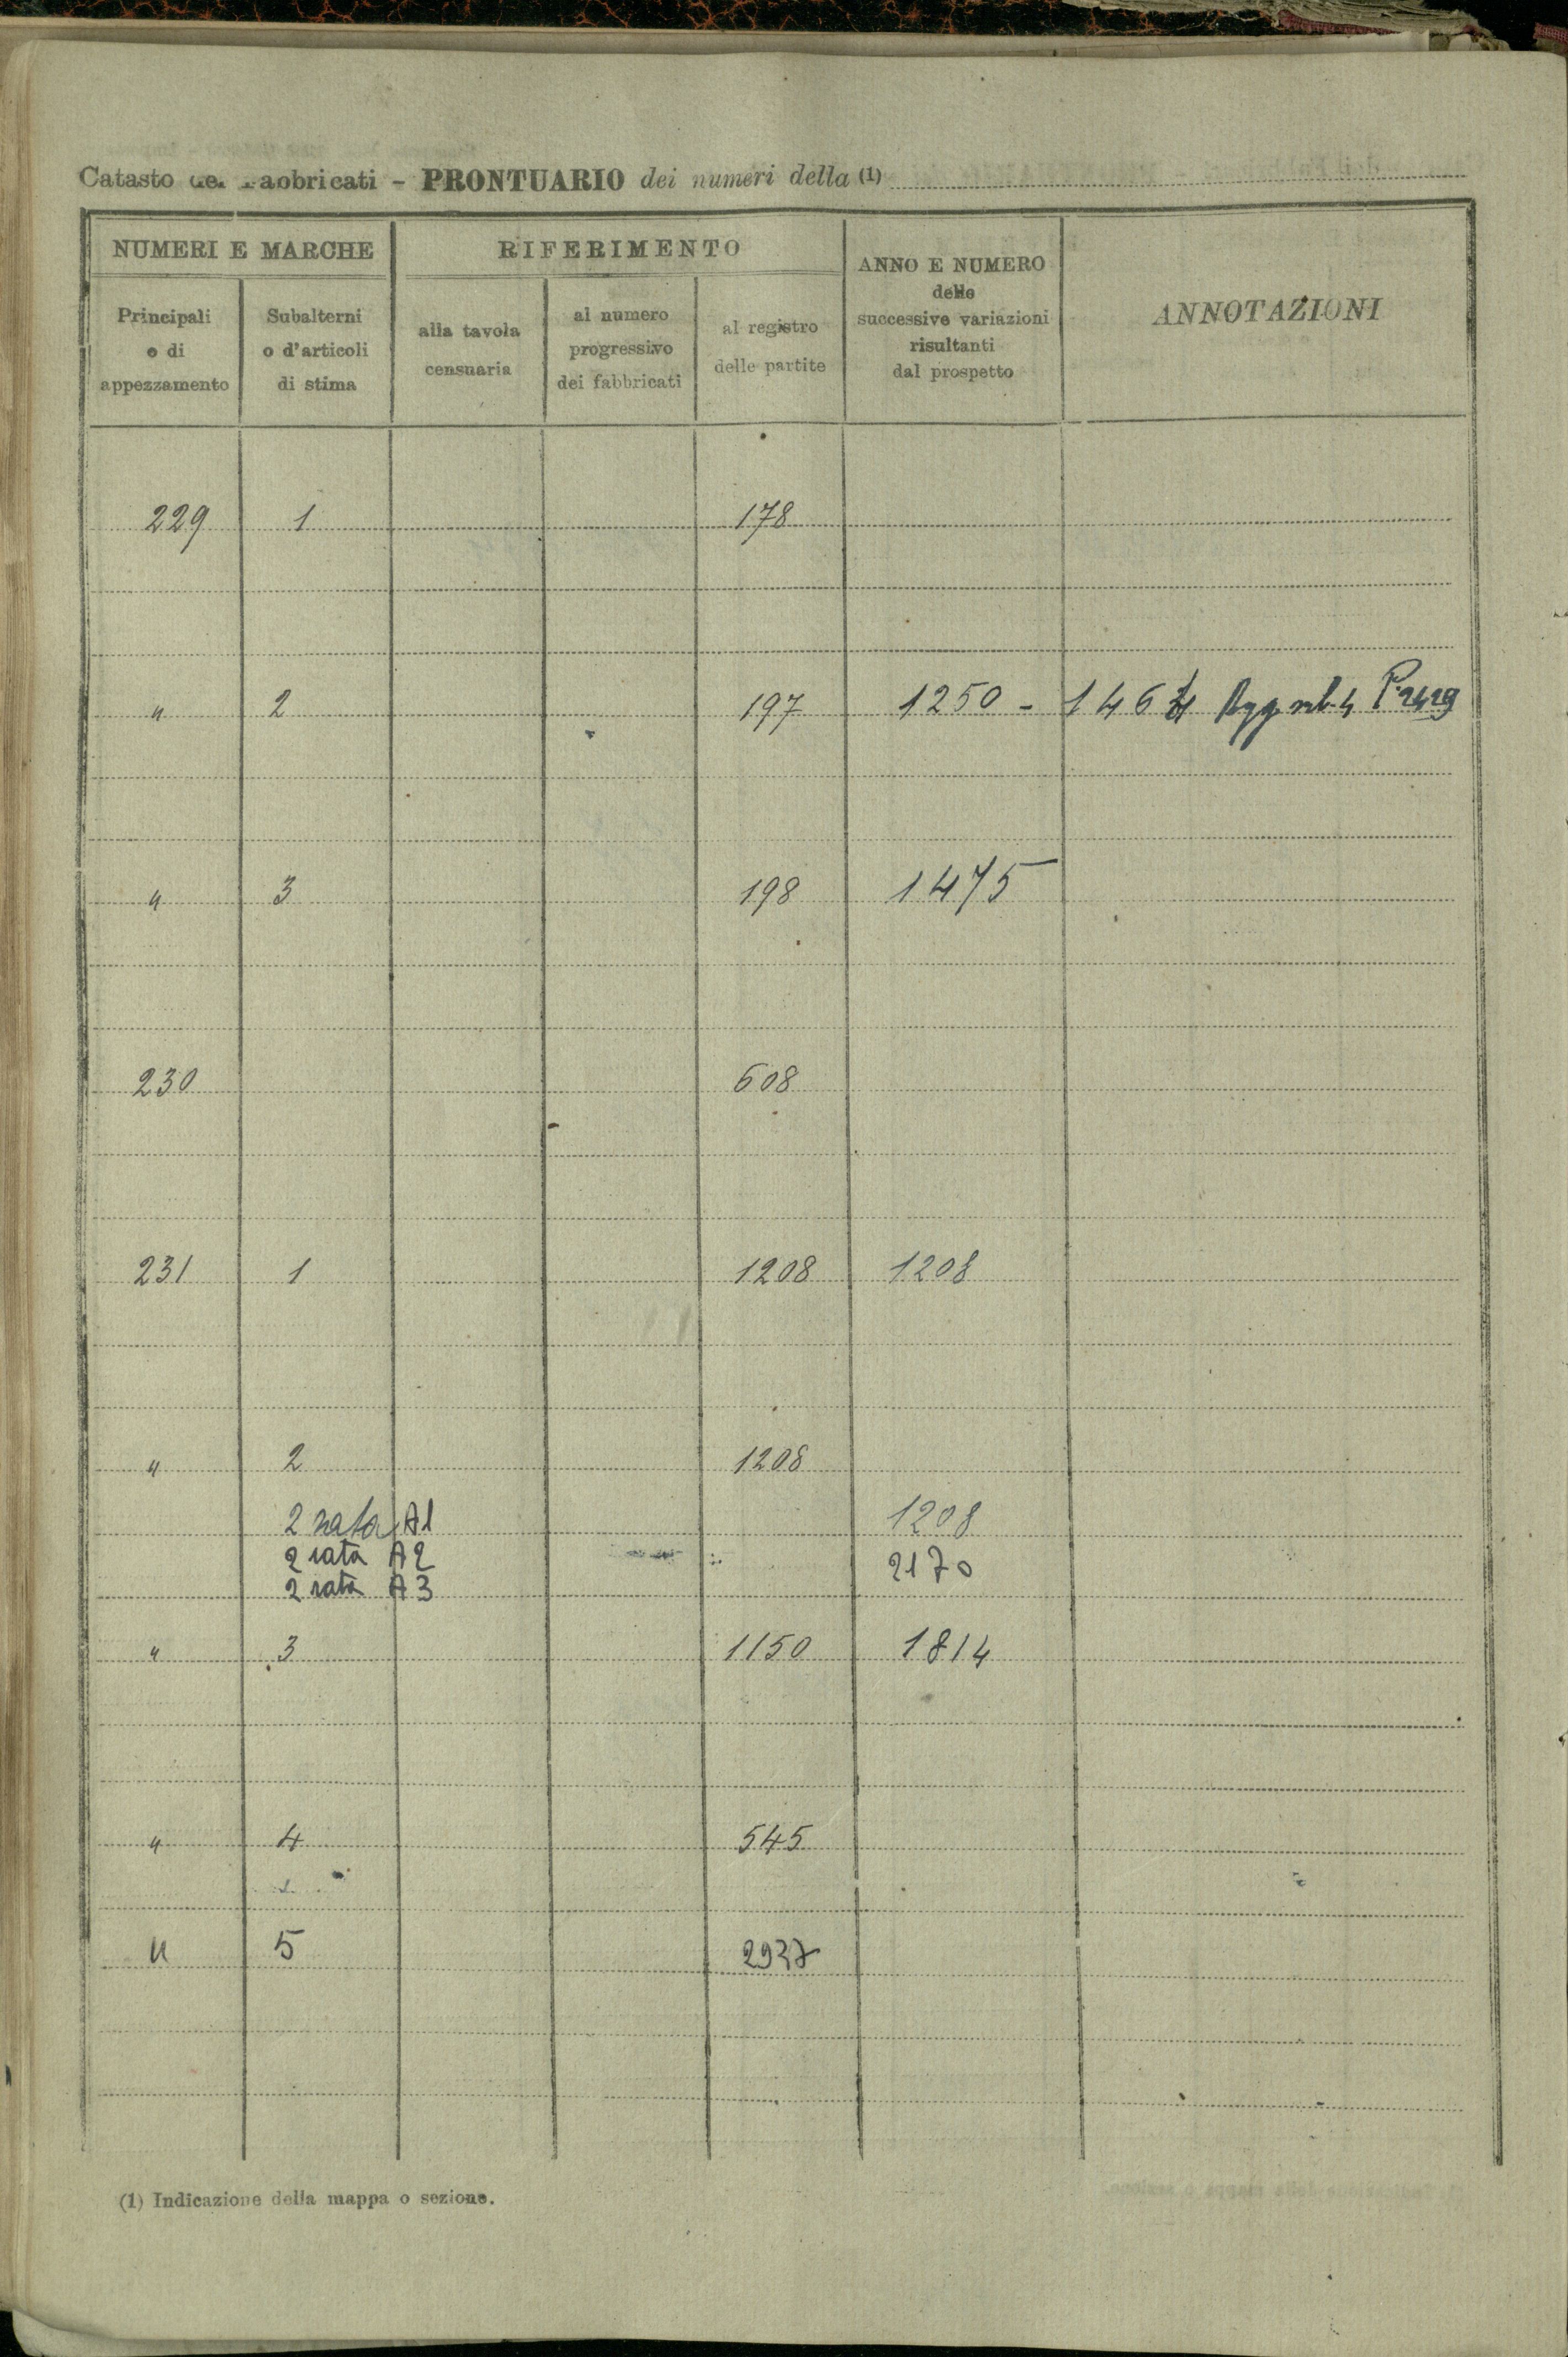 Catasto dei Fabbricati – PRONTUARIO dei numeri della (1)
NUMERI E MARCHE
RIFERIMENTO
ANNO E NUMERO
delle
successive variazioni
risultanti
dal prospetto
ANNOTAZIONI
Principali
e di
appezzamento
Subalterni
o d'articoli
di stima
alla tavola
censuaria
al numero
progressivo
dei fabbricati
al registro
delle partite
229 1 178
" 2 197 1250 - sub. 4 P. 2429
" 3 198 1475
230 608
231 1 1208 1208
" 2 1208
2 rata A1 1208
2 rata A2 2170
2 rata A3
" 3 1150 1814
" 4 545
" 5 2937
(1) Indicazione della mappa o sezione.